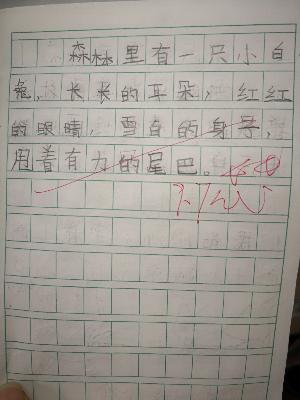 森林里有一只小白
兔，长长的耳朵，红红
的眼睛，雪白的身子，
甩着有力的尾巴。